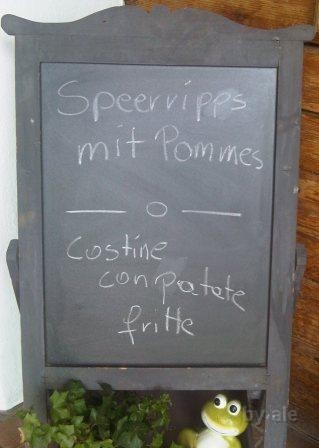 Speerripps
mit Pommes
— o —
costine
con patate
fritte
by ale